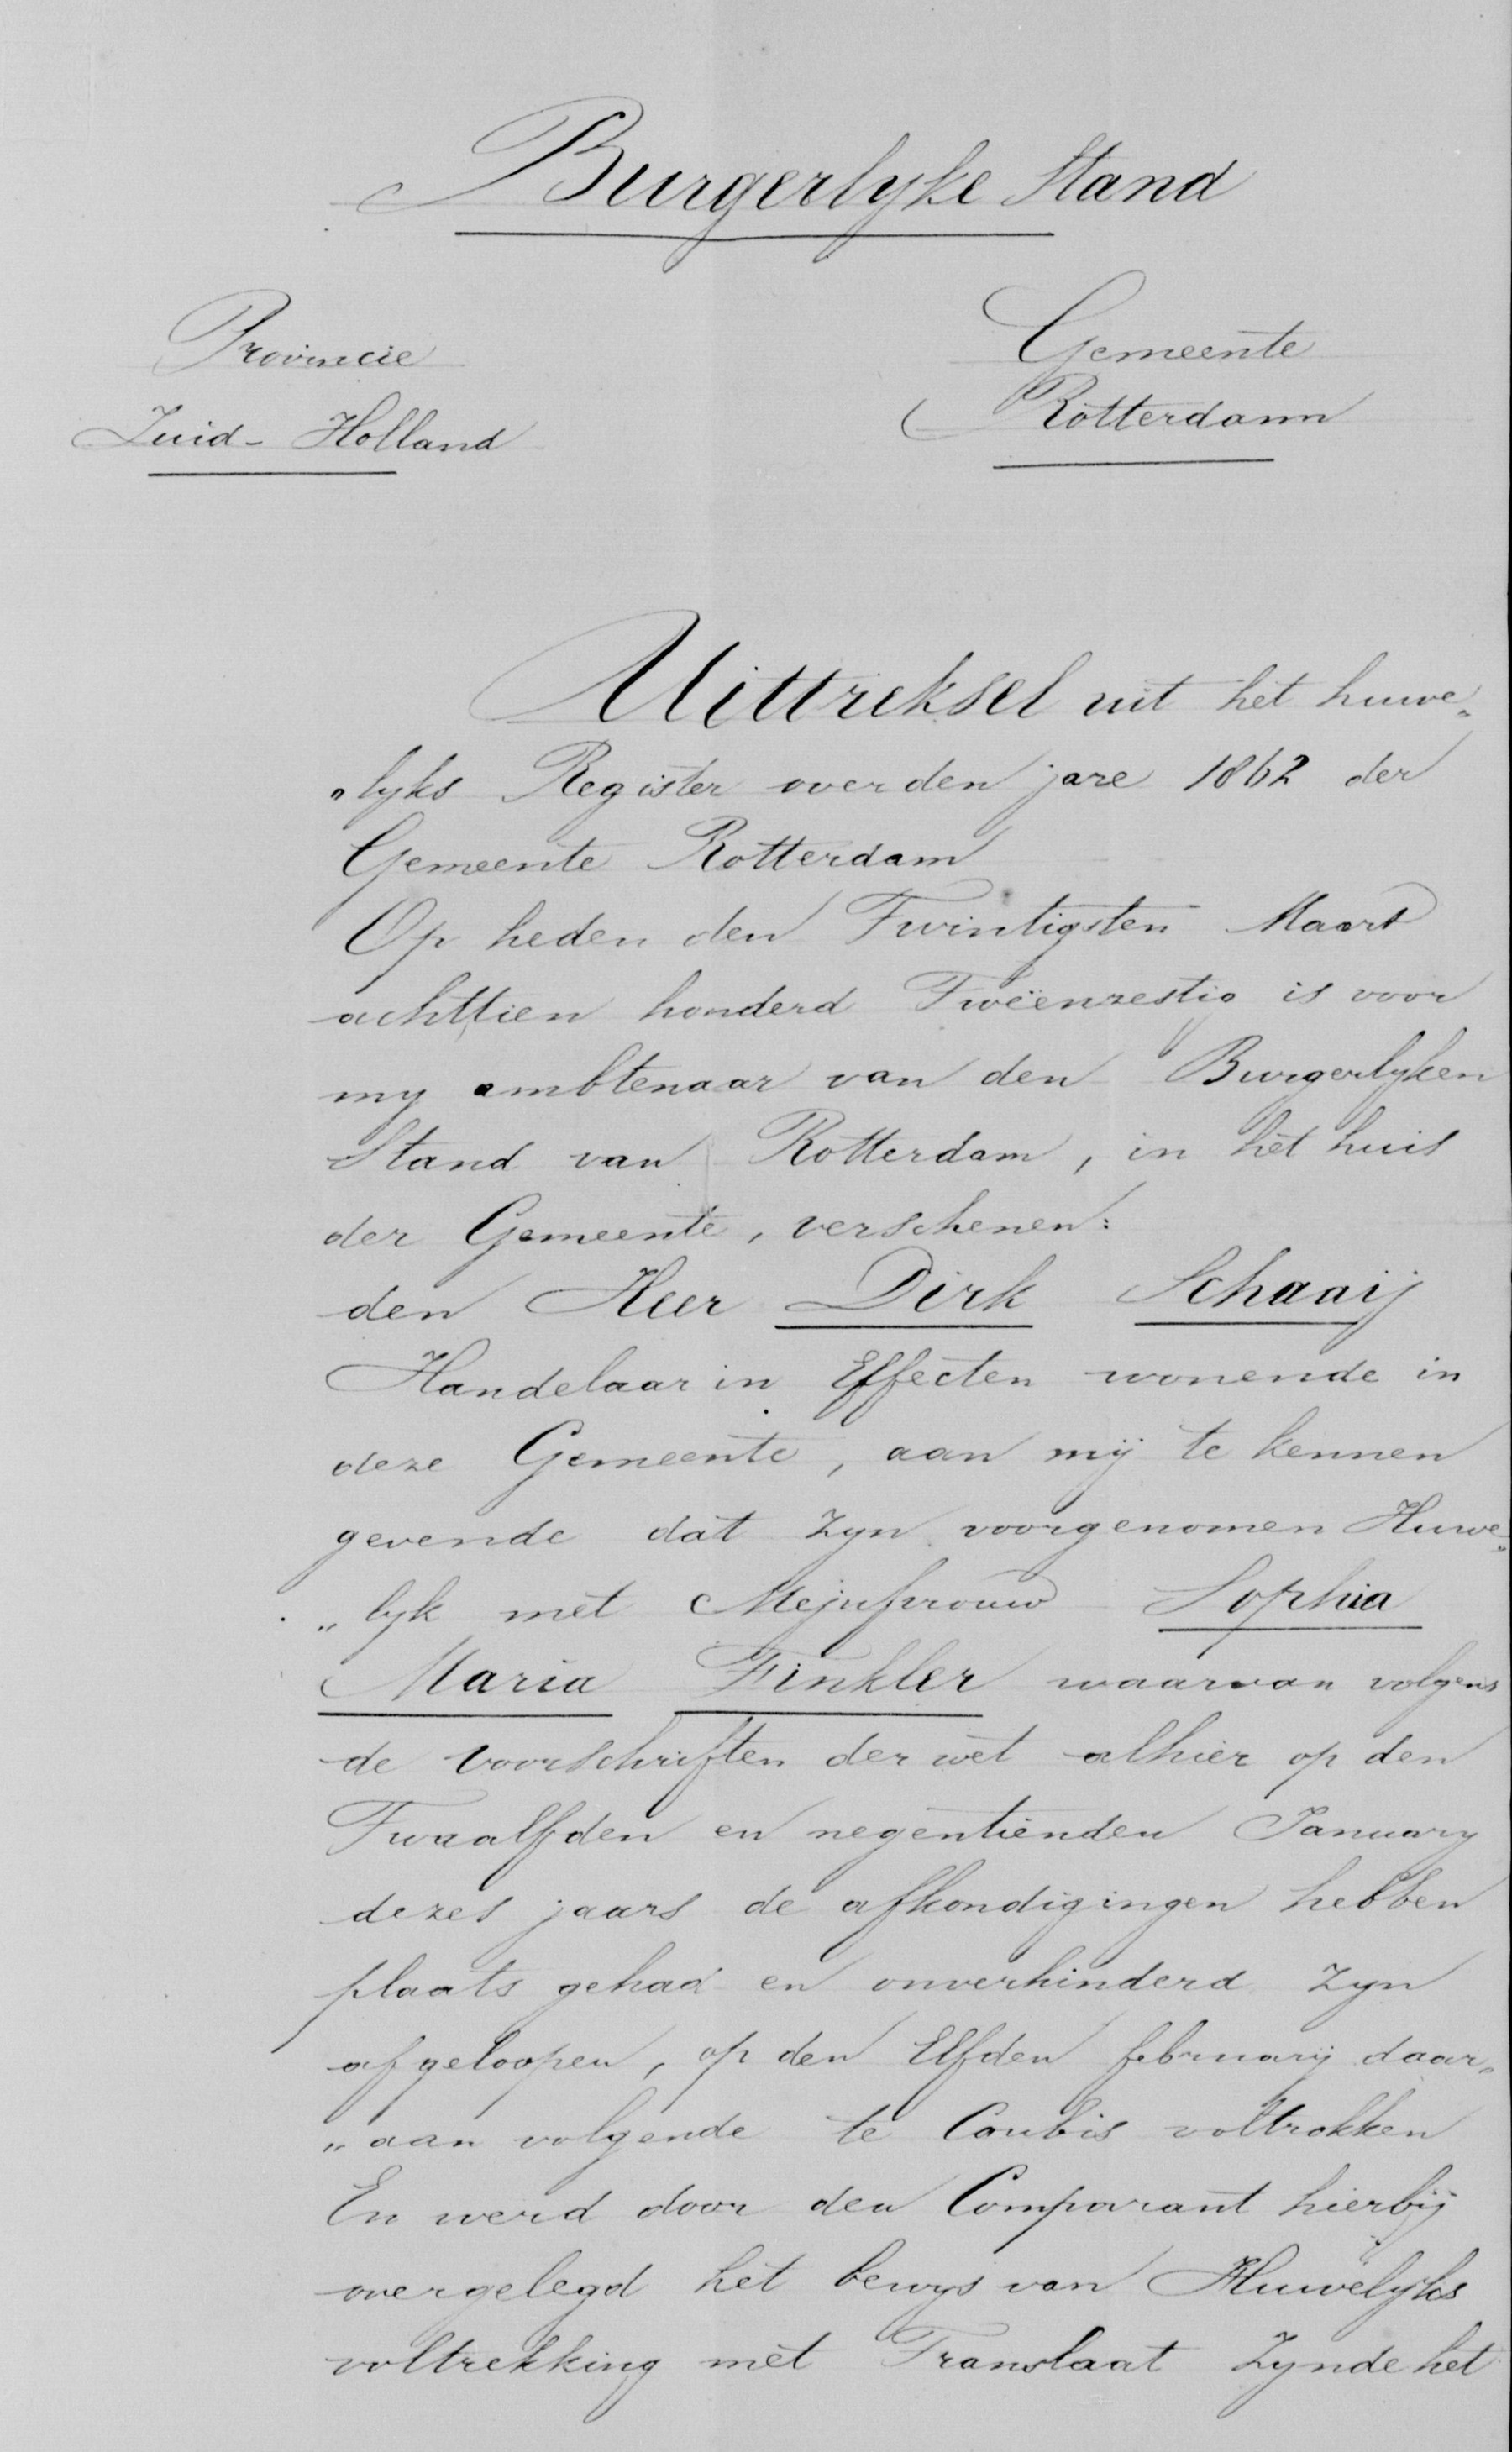 Burgerlyke Stand
Provincie
Zuid-Holland
Gemeente
Rotterdam
Uittreksel uit het huwe„
„lyks Register over den jare 1862 der
Gemeente Rotterdam
Op heden den Twintigsten Maart
achttien honderd Tweëenzestig is voor
my ambtenaar van den Burgerlyken
Stand van Rotterdam, in het huis
der Gemeente, verschenen:
den Heer Dirk Schaaij
Handelaar in Effecten wonende in
deze Gemeente, aan mij te kennen
gevende dat zyn voorgenomen Huwe„
„lyk met Mejufvrouw Sophia
Maria Finkler waarvan volgens
de voorschriften der wet alhier op den
Twaalfden en negentienden January
dezes jaars de afkondigingen hebben
plaats gehad en onverhinderd zyn
afgeloopen, op den Elfden februarij daar„
„aan volgende te Coubis voltrokken
En werd door den Comparant hierbij
overgelegd het bewys van Huwelyks
voltrekking met Translaat Zynde het